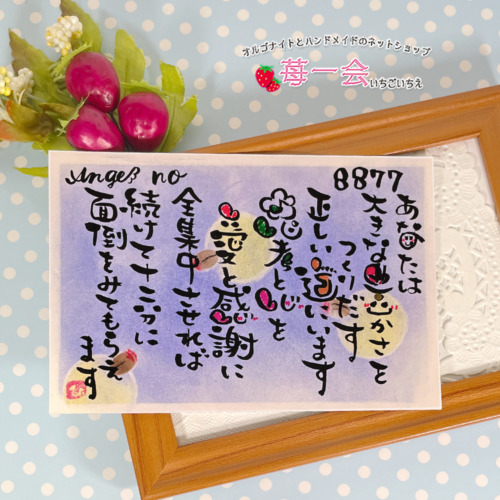 オルゴナイトとハンドメイドのネットショップ
苺一会
いちごいちえ
Angel no
8877
あなたは
大きな豊かさを
つくりだす
正しい道にいます
思考と心を
愛と感謝に
全集中させれば
続けて十二分に
面倒をみてもらえ
ます